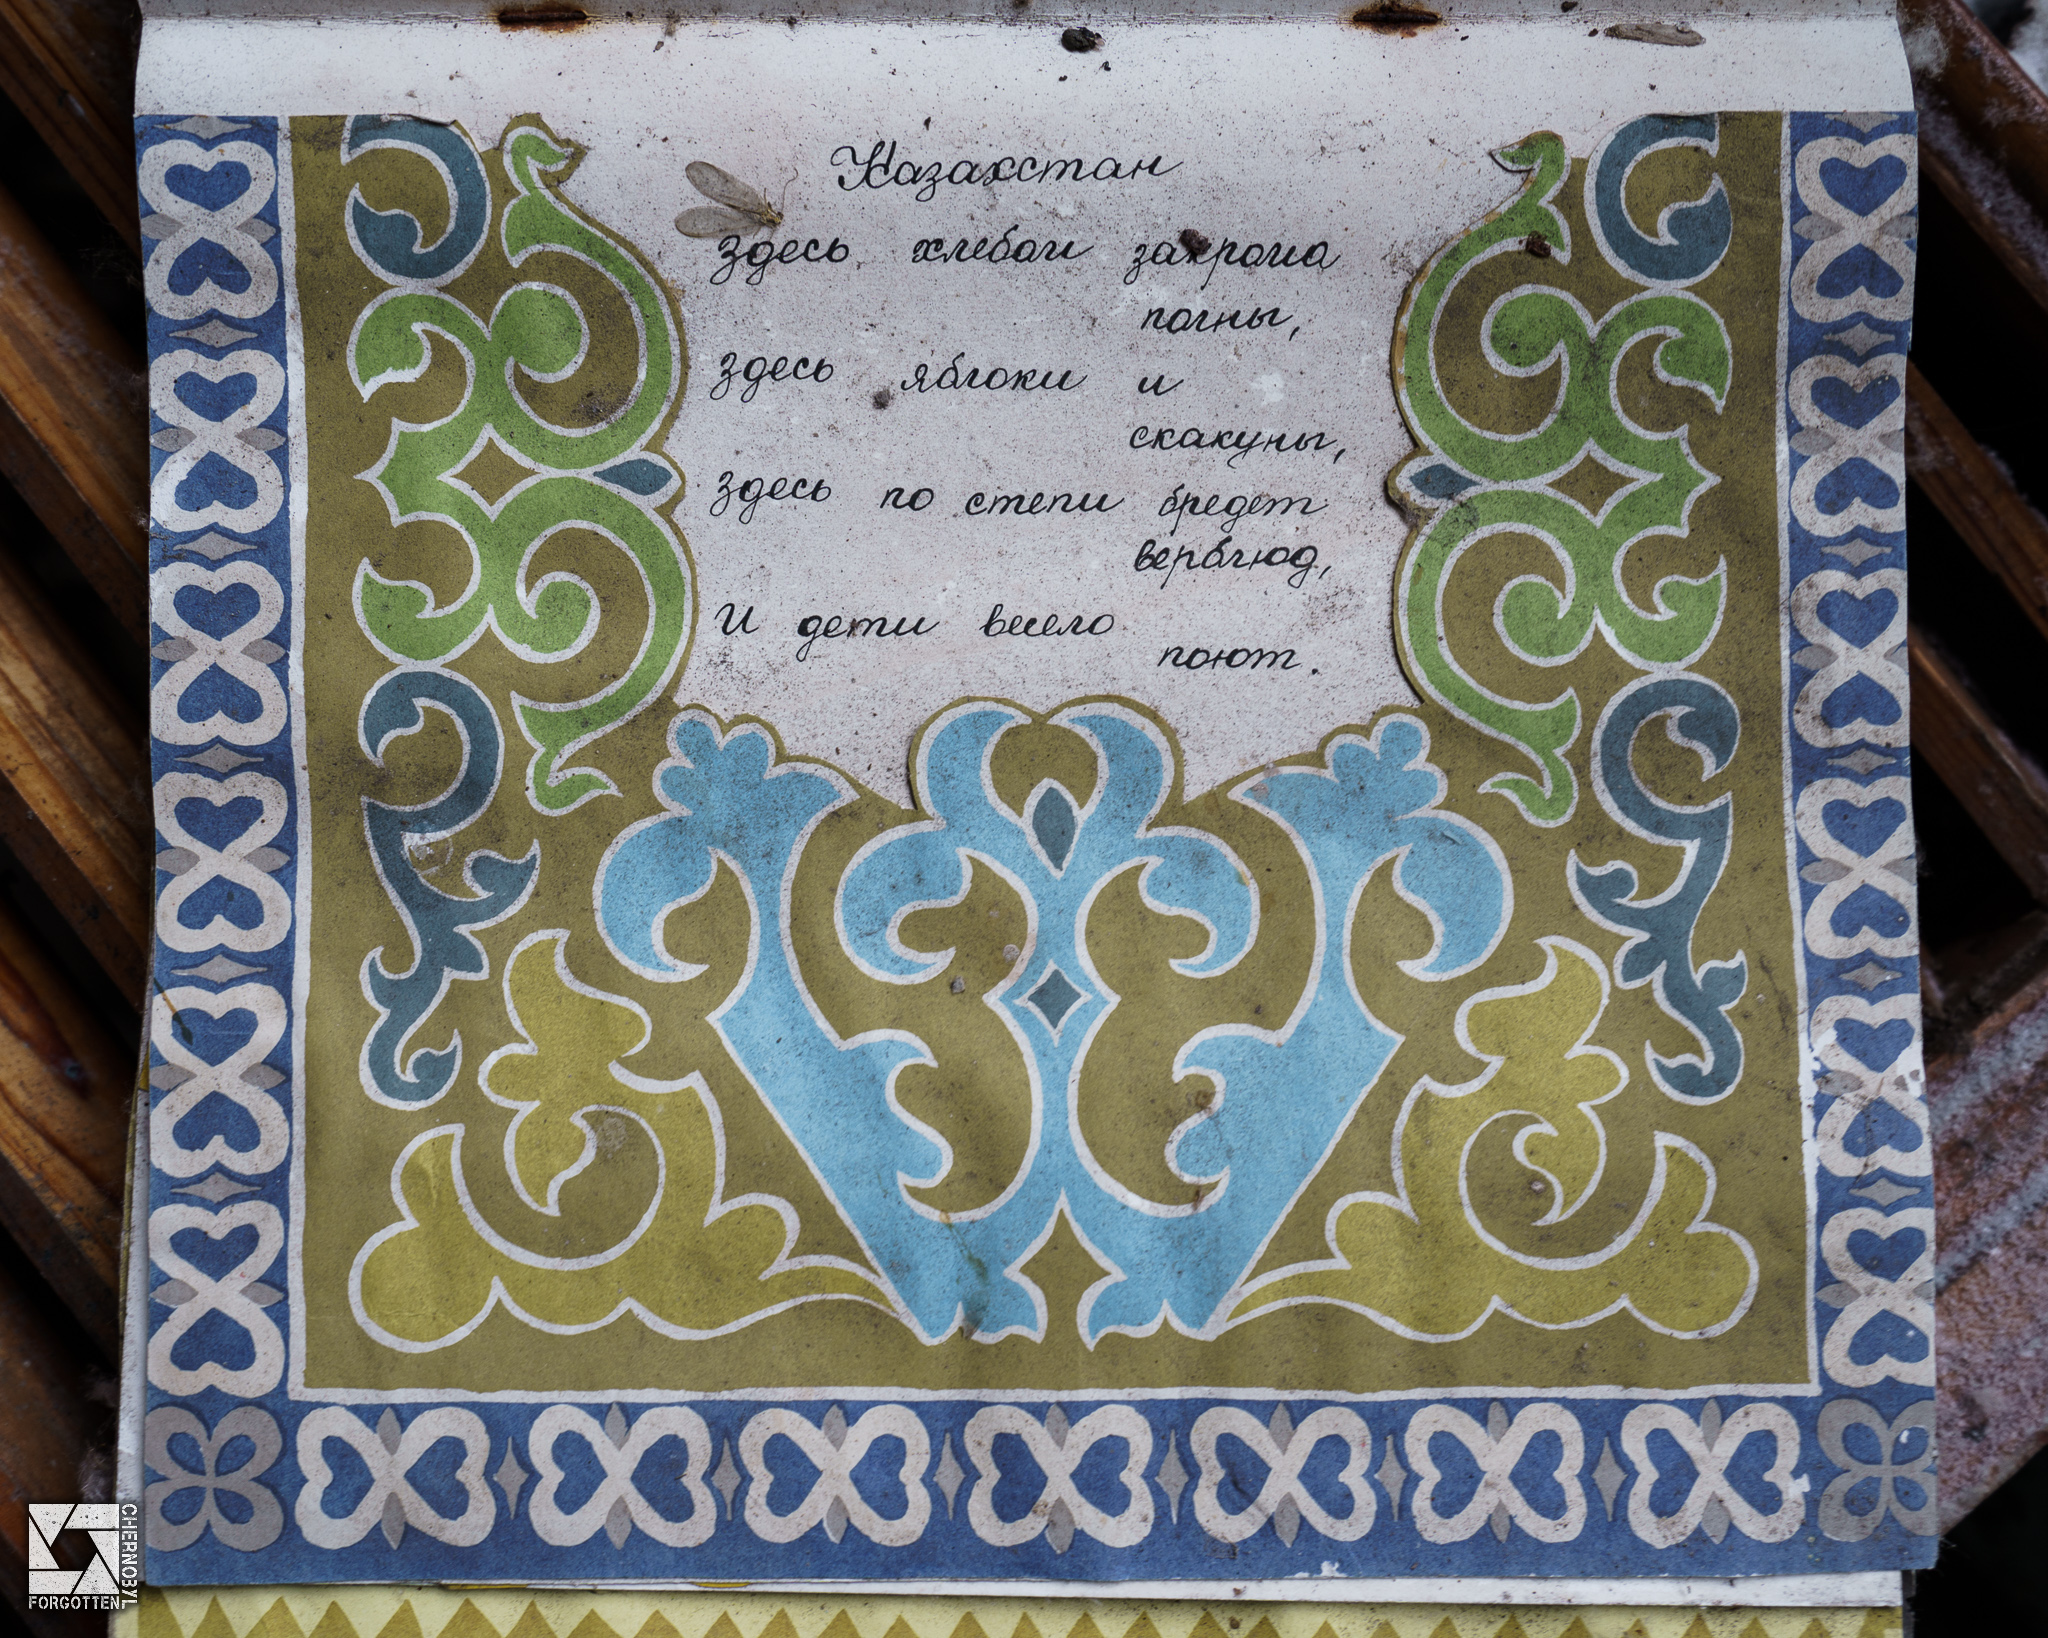 Казахстан
Здесь хлебом закрома
полны,
Здесь яблоки и
скакуны,
Здесь по степи бредет
верблюд,
И дети весело
поют.
CHERNOBYL
FORGOTTEN